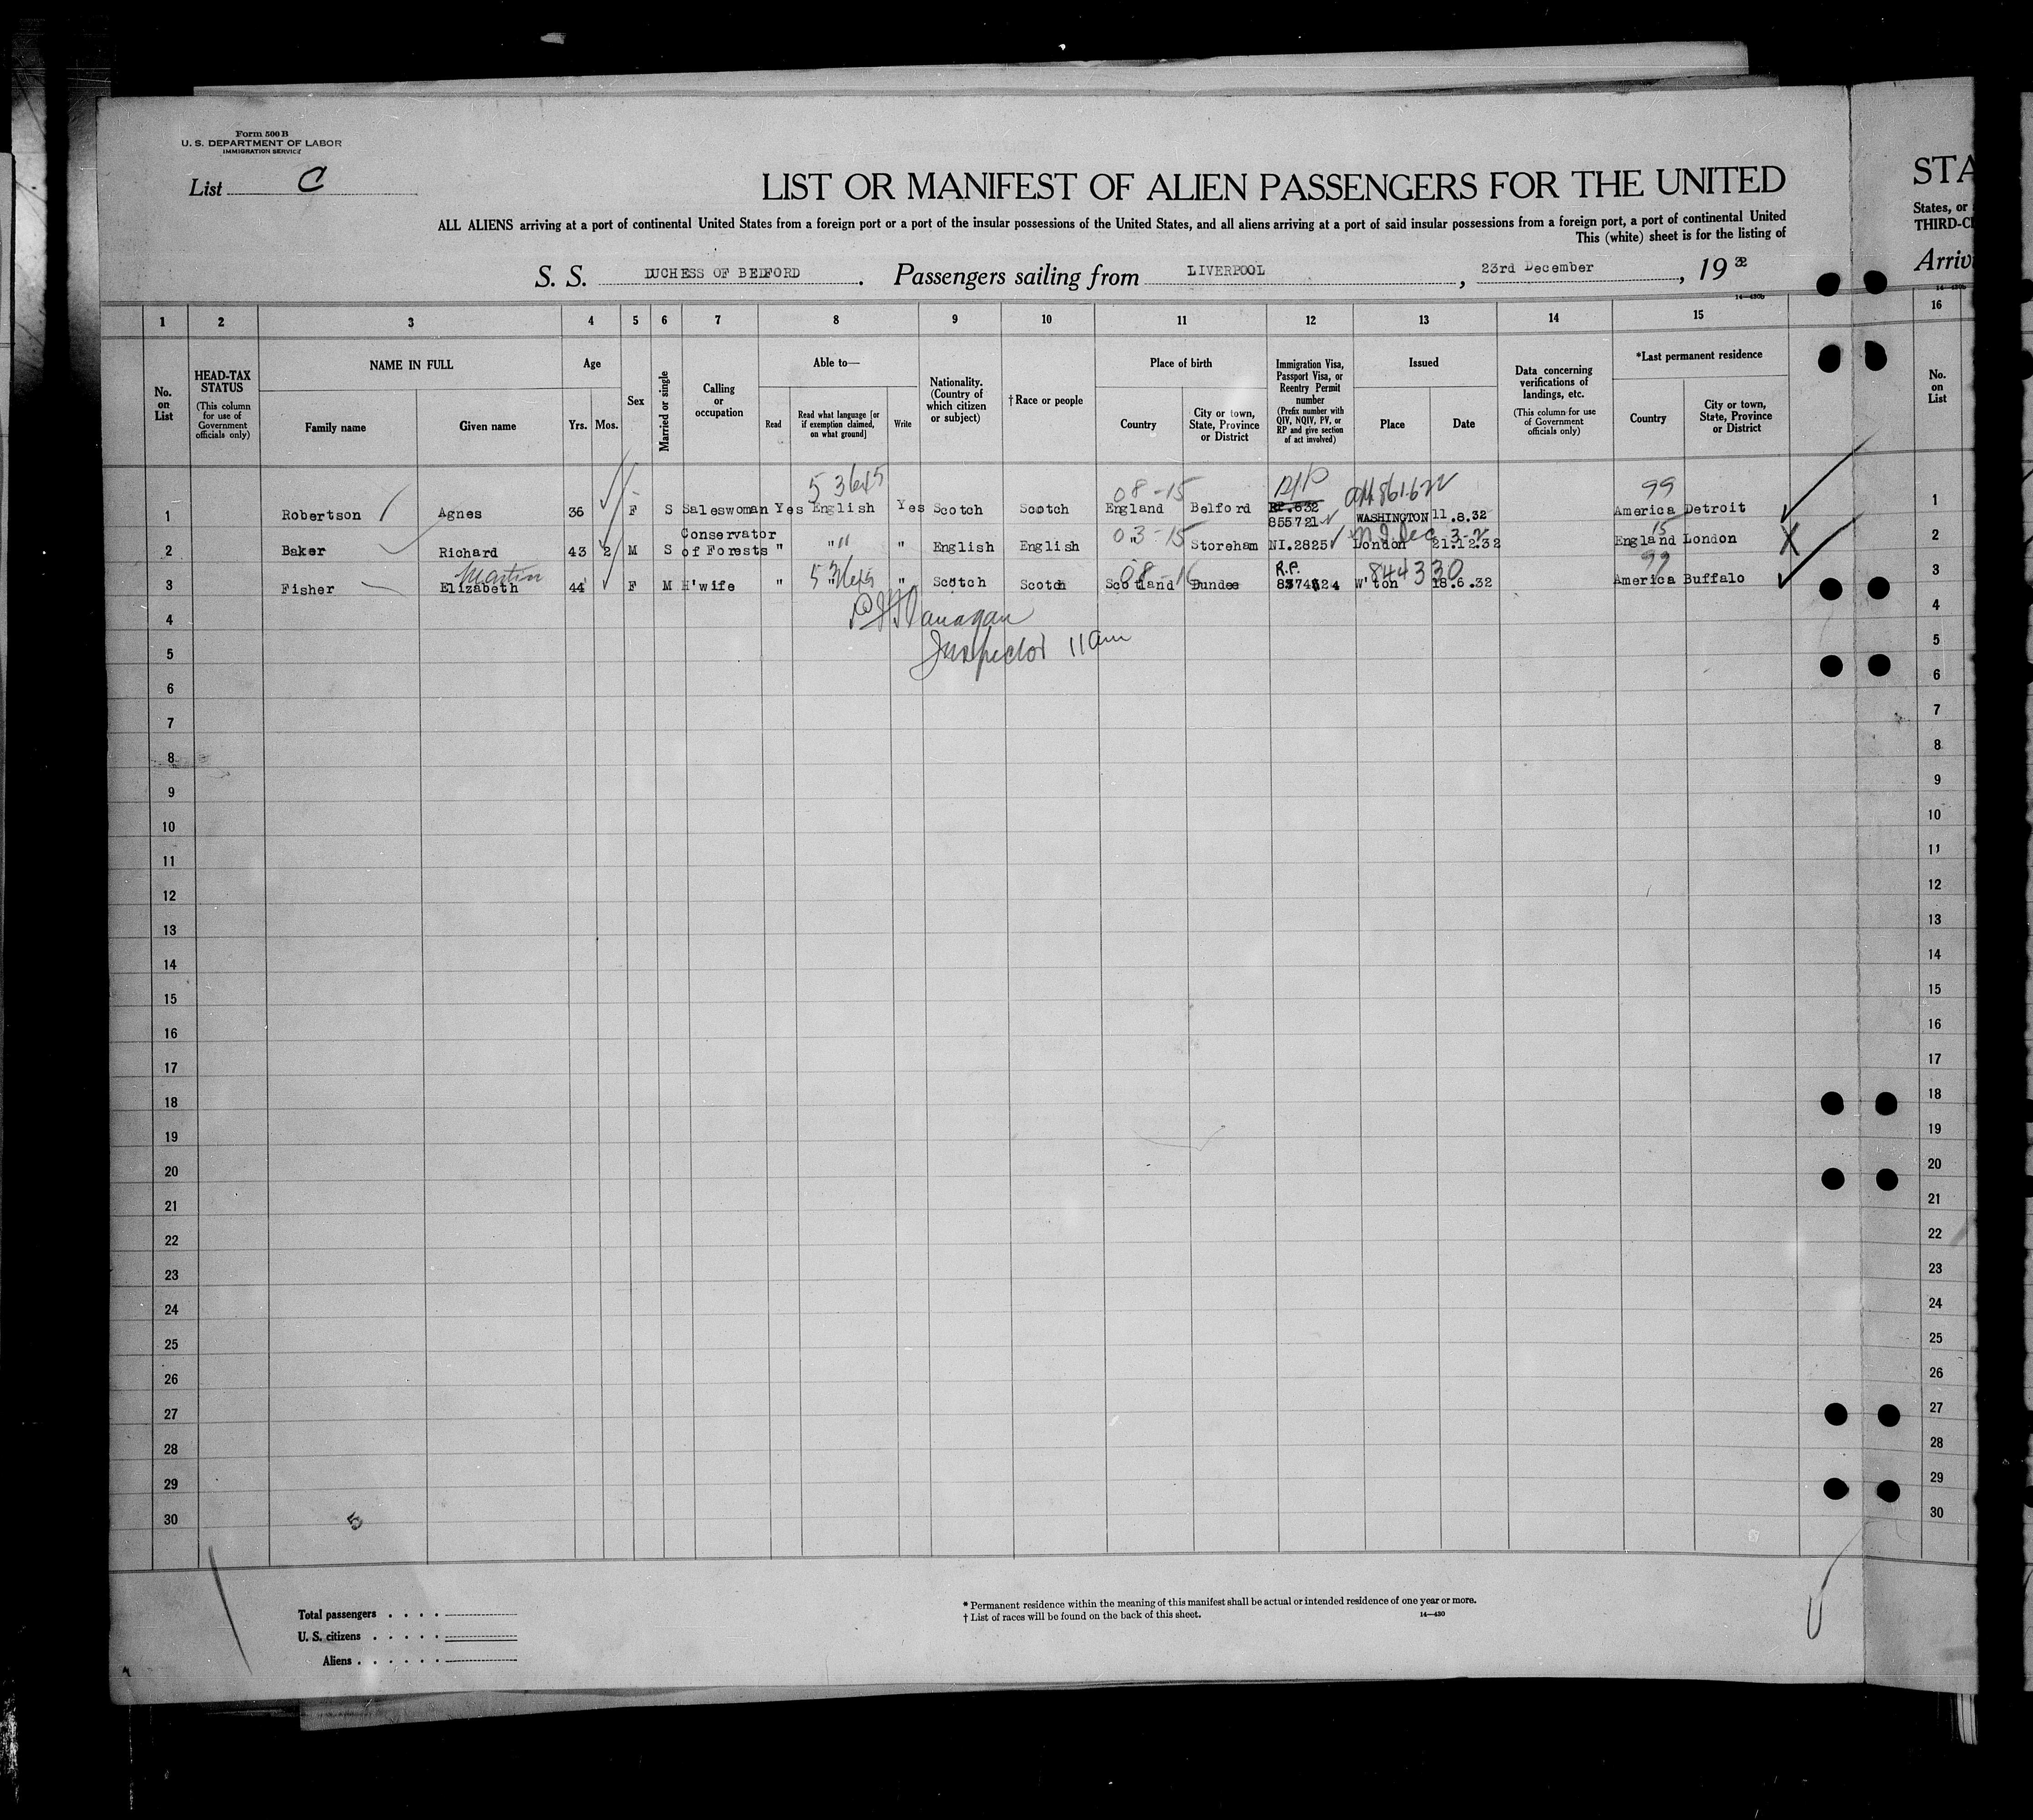 Form 500 B
U. S. DEPARTMENT OF LABOR
IMMIGRATION SERVICE
List C
LIST OR MANIFEST OF ALIEN PASSENGERS FOR THE UNITED
ALL ALIENS arriving at a port of continental United States from a foreign port or a port of the insular possessions of the United States, and all aliens arriving at a port of said insular possessions from a foreign port, a port of continental United
This (white) sheet is for the listing of
S. S. DUCHESS OF BEDFORD. Passengers sailing from LIVERPOOL, 23rd December, 19 32
STA
States, or
THIRD-CL
Arriv
1 2 3 4 5 6 7 8 9 10 11 12 13 14 15 16
No. on List
HEAD-TAX STATUS (This column for use of Government officials only)
NAME IN FULL
Family name
Given name
Age
Yrs. Mos.
Sex
Married or single
Calling or occupation
Able to—
Read
Read what language [or if exemption claimed, on what ground]
Write
Nationality. (Country of which citizen or subject)
†Race or people
Place of birth
Country
City or town, State, Province or District
Immigration Visa, Passport Visa, or Reentry Permit number (Prefix number with QIV, NQIV, PV, or RP and give section of act involved)
Issued
Place
Date
Data concerning verifications of landings, etc. (This column for use of Government officials only)
*Last permanent residence
Country
City or town, State, Province or District
No. on List
08-15 99
1 Robertson Agnes 36 F S Saleswoman Yes English Yes Scotch Scotch England Belford 855721 WASHINGTON 11.8.32 America Detroit 1
03-15 15
2 Baker Richard 43 2 M S Conservator of Forests " " " English English " Storeham NI.2825 London 21.12.32 England London X 2
Martin 844330 99
3 Fisher Elizabeth 44 F M H'wife " " " Scotch Scotch Scotland Dundee R.P. W'ton 18.6.32 America Buffalo 3
4 4
Inspector 11am
5 5
6 6
7 7
8 8
9 9
10 10
11 11
12 12
13 13
14 14
15 15
16 16
17 17
18 18
19 19
20 20
21 21
22 22
23 23
24 24
25 25
26 26
27 27
28 28
29 29
30 30
5
Total passengers
U. S. citizens
Aliens
* Permanent residence within the meaning of this manifest shall be actual or intended residence of one year or more.
† List of races will be found on the back of this sheet.
14—430